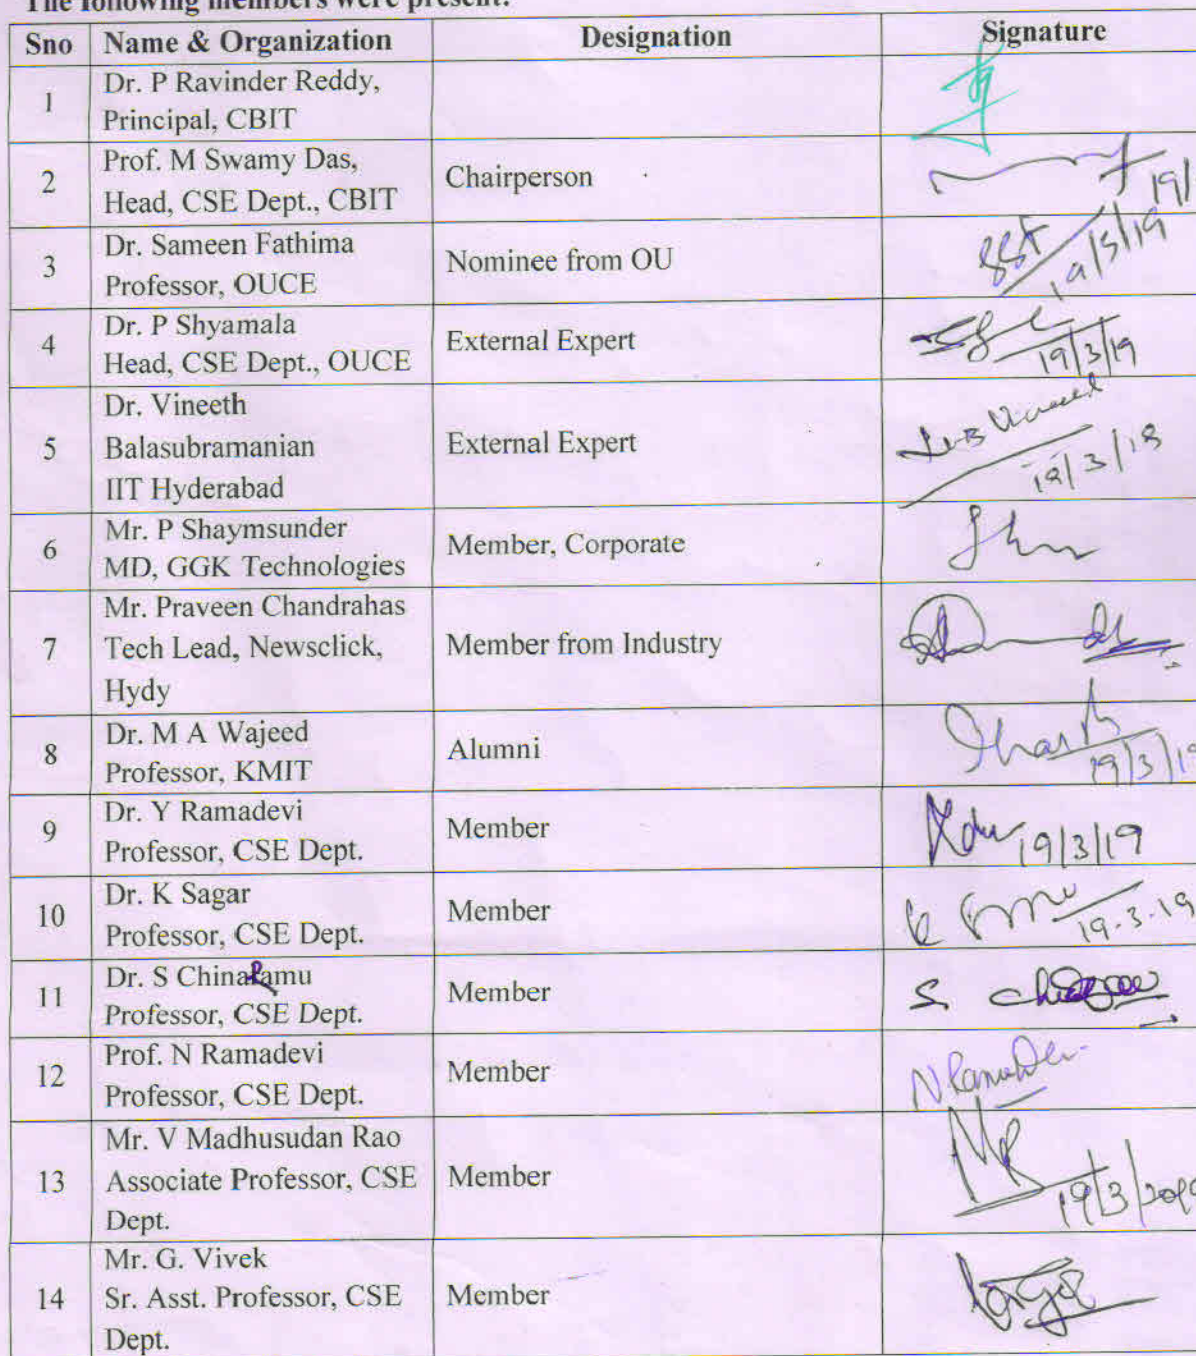 The following members were present:
Sno Name & Organization Designation Signature
1 Dr. P Ravinder Reddy,
Principal, CBIT
2 Prof. M Swamy Das,
Head, CSE Dept., CBIT Chairperson 19/
3 Dr. Sameen Fathima
Professor, OUCE Nominee from OU 19/3/19
4 Dr. P Shyamala
Head, CSE Dept., OUCE External Expert 19/3/19
5 Dr. Vineeth
Balasubramanian
IIT Hyderabad External Expert 19/3/18
6 Mr. P Shaymsunder
MD, GGK Technologies Member, Corporate
7 Mr. Praveen Chandrahas
Tech Lead, Newsclick,
Hydy Member from Industry
8 Dr. M A Wajeed
Professor, KMIT Alumni 19/3/19
9 Dr. Y Ramadevi
Professor, CSE Dept. Member 19/3/19
10 Dr. K Sagar
Professor, CSE Dept. Member 19-3-19
11 Dr. S ChinaRamu
Professor, CSE Dept. Member
12 Prof. N Ramadevi
Professor, CSE Dept. Member N RamaDevi
13 Mr. V Madhusudan Rao
Associate Professor, CSE
Dept. Member 19/3/2019
14 Mr. G. Vivek
Sr. Asst. Professor, CSE
Dept. Member